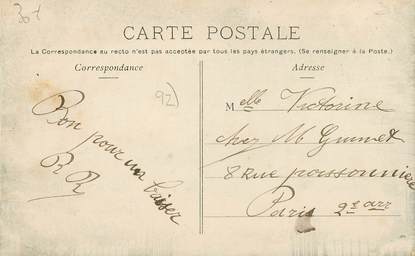 30+
CARTE POSTALE
La Correspondance au recto n'est pas acceptée par tous les pays étrangers. (Se renseigner à la Poste.)
Correspondance
Adresse
92)
Bon pour un baiser
R R
Melle Victorine
chez M Gumet
8 Rue poissonniere
Paris 2e arr